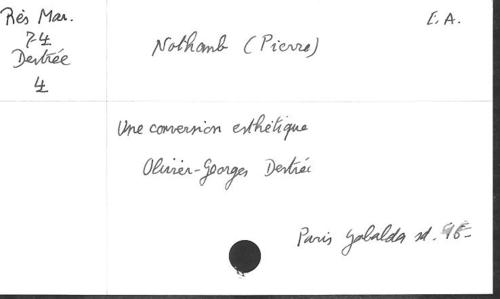 Rés Mar.
74
Destrée
4
E. A.
Nothomb (Pierre)
Une conversion esthétique
Olivier-Georges Destrée
Paris Gabalda sd.